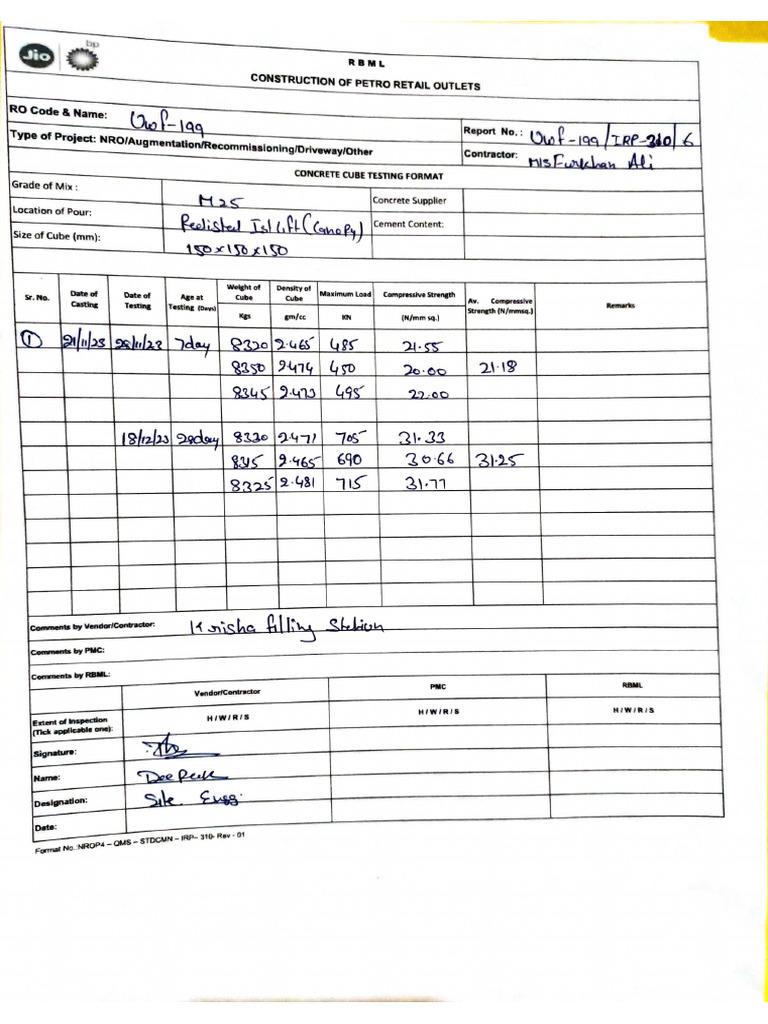 Jio
bp
RBML
CONSTRUCTION OF PETRO RETAIL OUTLETS
RO Code & Name: Uwf-199
Report No.: Uwf-199/IRP-310/6
Type of Project: NRO/Augmentation/Recommissioning/Driveway/Other
Contractor: M/S Furkhan Ali
CONCRETE CUBE TESTING FORMAT
Grade of Mix : M25 Concrete Supplier
Location of Pour: Pedistal Ist Lift (Canopy) Cement Content:
Size of Cube (mm): 150×150×150
Sr. No. Date of Casting Date of Testing Age at Testing (Days) Weight of Cube Kgs Density of Cube gm/cc Maximum Load KN Compressive Strength (N/mm sq.) Av. Compressive Strength (N/mmsq.) Remarks
1 21/11/23 28/11/23 7day 8320 2.465 485 21.55
8350 2.474 450 20.00 21.18
8345 2.473 495 22.00
18/12/23 28day 8330 2.471 705 31.33
8315 2.465 690 30.66 31.25
8325 2.481 715 31.77
Comments by Vendor/Contractor: Krisha filling Station
Comments by PMC:
Comments by RBML:
Vendor/Contractor PMC RBML
Extent of Inspection (Tick applicable one): H/W/R/S H/W/R/S H/W/R/S
Signature:
Name: Deepeak
Designation: Site. Engg.
Date:
Format No.:NROP4 – QMS – STDCMN – IRP– 310- Rev - 01